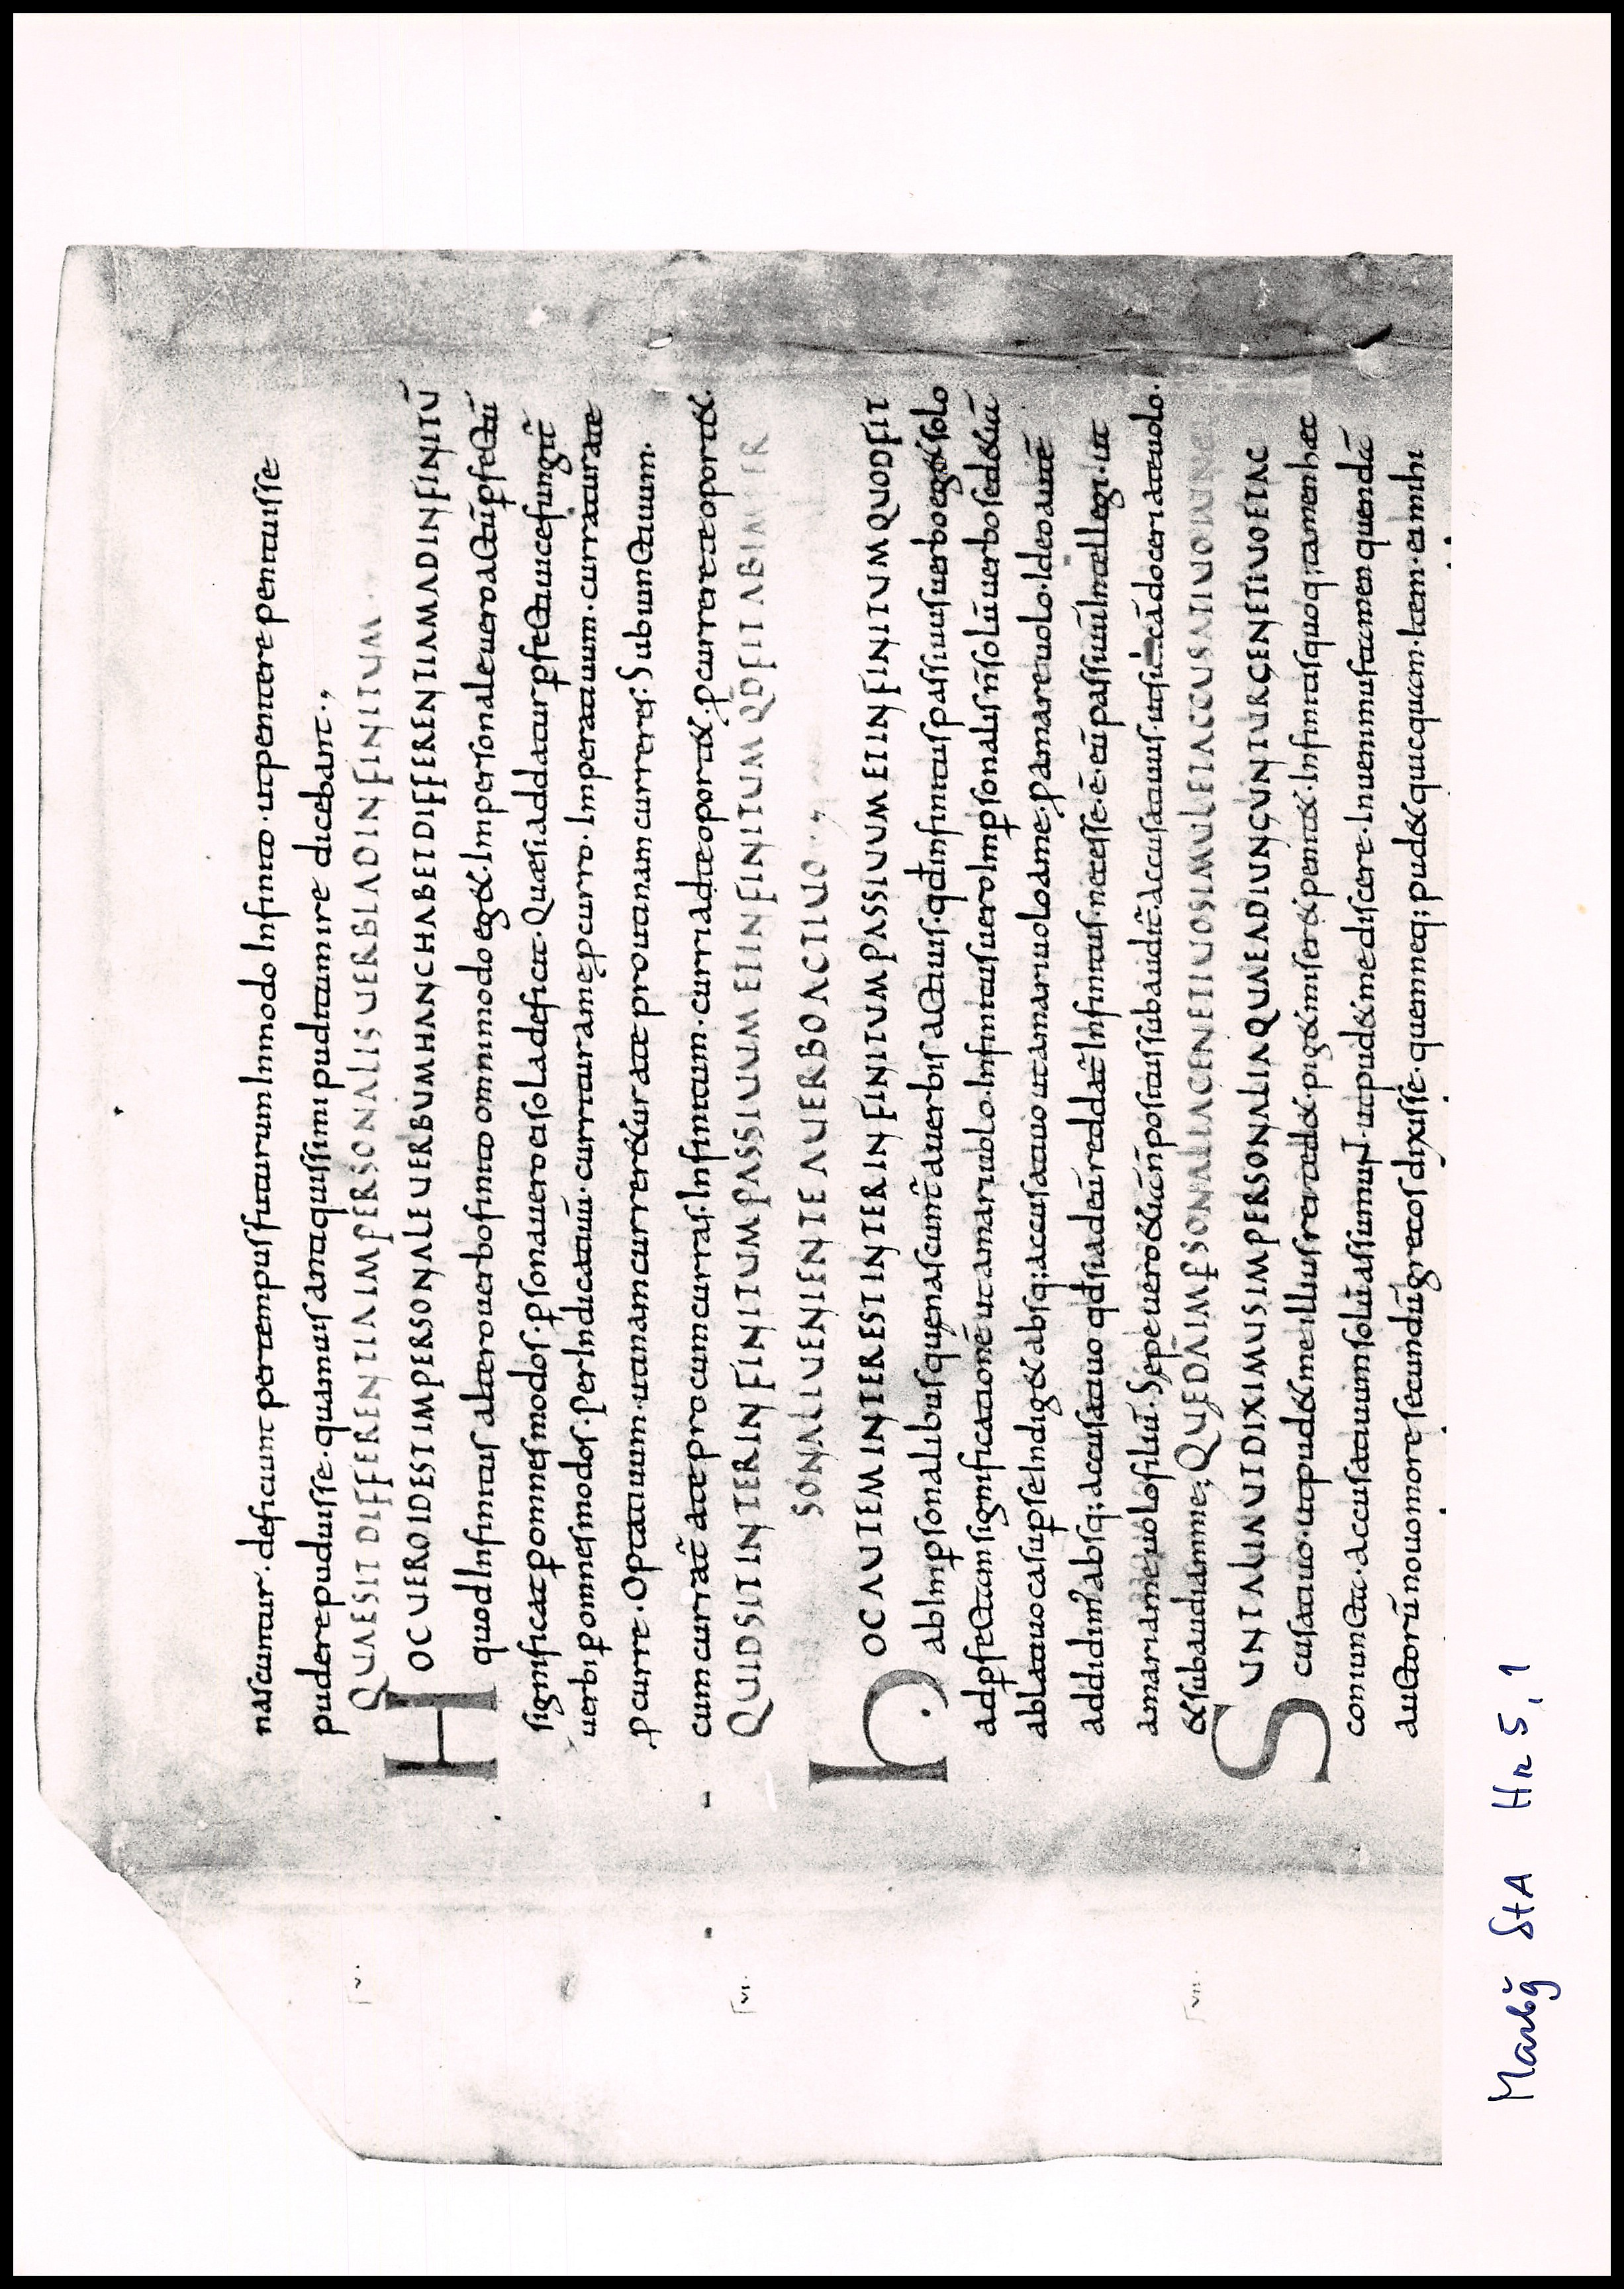 nascuntur. deficiunt per tempus futurum In modo Infinito. ut penitere penituisse
pudere puduisse. quamuis antiquissimi puditum ire dicebant.,
QUAE SIT DIFFERENTIA IMPERSONALIS UERBI AD INFINITUM
HOC UERO IDEST IMPERSONALE UERBUM HANC HABET DIFFERENTIAM AD INFINITŪ
quod Infinitus altero uerbo finito omnimodo eg&. Impersonale uero actū ꝑfectū
significat ꝑ omnes modos. ꝑsona uero ei sola deficit. Quae si addatur ꝑfecta uice fungit̄
uerbi ꝑ omnes modos. Per Indicatiuū. curritur a me ꝓ curro. Imperatiuum. curratur a te
ꝓ curre. Optatiuum. utinam curreretur a te pro utinam curreres. Subiunctiuum.
cum currat̄ a te pro cum curras. Infinitum. curri a te oport&. ꝓ currere te oport&.
QUID SIT INTER INFINITUM PASSIUUM ET INFINITUM QD̄ FIT AB IMPER
SONALI UENIENTE A UERBO ACTIUO.,
hOC AUTEM INTEREST INTER INFINITUM PASSIUUM ET INFINITUM QUOD FIT
ab Imꝑsonalibus que nascunt̄ a uerbis actiuis. qd̄ Infinitus passiuus uerbo eg& solo
ad ꝑfectam significationē ut amari uolo. Infinitus uero Imꝑsonalis n̄ solū uerbo sed &iā
ablatiuo casu ꝑse Indig& absq; accusatiuo ut amari uolo a me. ꝓ amare uolo. Ideo autē
addidim᾽ absq; accusatiuo qd̄ si addeū reddat̄ Infinitus. necesse ē eū passiuū Intellegi. ut
amari a me uolo filiū. Sepe uero &iā n̄ positus subaudit̄ accusatiuus. ut si dicā doceri a te uolo.
& subaudia me; QUEDĀ IMꝐSONALIA GENETIUO SIMUL ET ACCUSATIUO IUNGI
SUNT ALIA UT DIXIMUS IMPERSONALIA QUAE ADIUNGUNTUR GENETIUO ET AC
cusatiuo. ut pud& me illius & ted& . pig& miser& penit&. Infinitis quoq; tamen haec
coniuncta. accusatiuum solū assumunt. ut pud& me discere. Inuenimus tamen quendā
auctorū nouo more secundū grecos dixisse. quem neq; pud& quicquam. Item. ea mihi
v.
vi.
vii.
Marbg StA Hr 5, 1